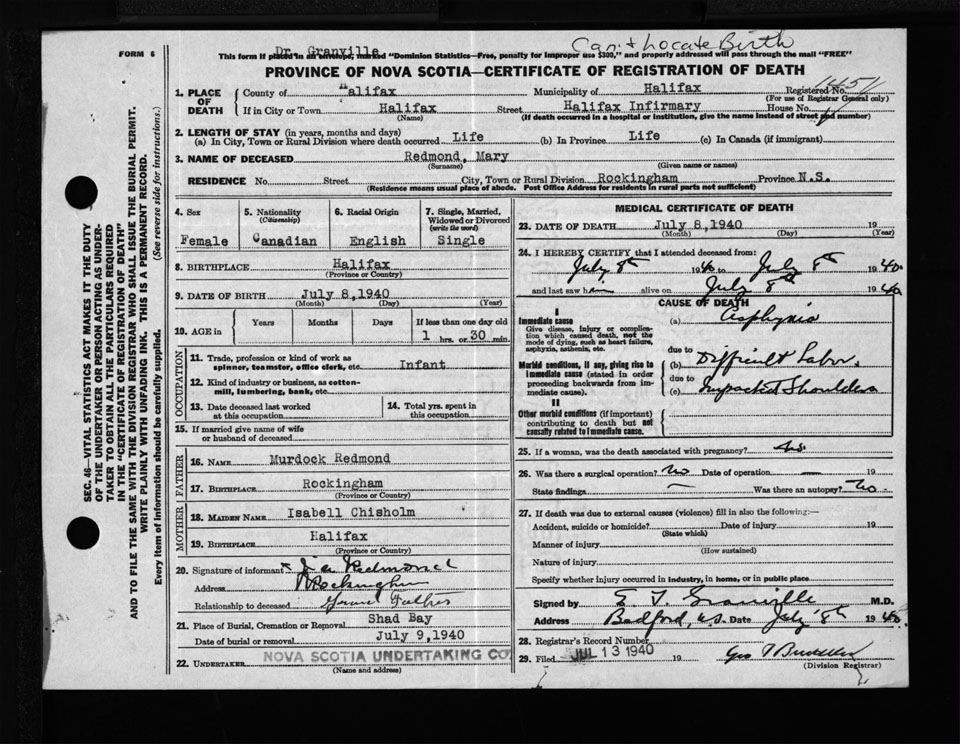 FORM 6
Dr. Granville
Can't Locate Birth
This form if placed in an envelope, marked "Dominion Statistics—Free, penalty for improper use $300," and properly addressed will pass through the mail "FREE"
PROVINCE OF NOVA SCOTIA—CERTIFICATE OF REGISTRATION OF DEATH
1. PLACE OF DEATH
County of Halifax Municipality of Halifax Registered No.
(For use of Registrar General only)
If in City or Town Halifax Street Halifax Infirmary House No.
(Name) (If death occurred in a hospital or institution, give the name instead of street and number)
2. LENGTH OF STAY (in years, months and days)
(a) In City, Town or Rural Division where death occurred Life (b) In Province Life (c) In Canada (if immigrant)
3. NAME OF DECEASED Redmond, Mary
(Surname) (Given name or names)
RESIDENCE No. Street City, Town or Rural Division Rockingham Province N.S.
(Residence means usual place of abode. Post Office Address for residents in rural parts not sufficient)
4. Sex
Female
5. Nationality
(Citizenship)
Canadian
6. Racial Origin
English
7. Single, Married, Widowed or Divorced
(write the word)
Single
8. BIRTHPLACE Halifax
(Province or Country)
9. DATE OF BIRTH July 8,1940
(Month) (Day) (Year)
10. AGE in
Years Months Days If less than one day old
1 hrs. or 30 min.
OCCUPATION
11. Trade, profession or kind of work as
spinner, teamster, office clerk, etc. Infant
12. Kind of industry or business, as cotton-
mill, lumbering, bank, etc.
13. Date deceased last worked
at this occupation
14. Total yrs. spent in
this occupation
15. If married give name of wife
or husband of deceased
FATHER
16. NAME Murdock Redmond
17. BIRTHPLACE Rockingham
(Province or Country)
MOTHER
18. MAIDEN NAME Isabell Chisholm
19. BIRTHPLACE Halifax
(Province or Country)
20. Signature of informant J a Redmond
Address Rockingham
Relationship to deceased Grand Father
21. Place of Burial, Cremation or Removal Shad Bay
Date of burial or removal July 9,1940
22. UNDERTAKER NOVA SCOTIA UNDERTAKING CO.
(Name and address)
MEDICAL CERTIFICATE OF DEATH
23. DATE OF DEATH July 8,1940 19
(Month) (Day) (Year)
24. I HEREBY CERTIFY that I attended deceased from:
July 8th 1940 to July 8th 1940.
and last saw h alive on July 8th 1940
CAUSE OF DEATH
I
Immediate cause
Give disease, injury or complica-
tion which caused death, not the
mode of dying, such as heart failure,
asphyxia, asthenia, etc.
(a) Asphyxia
due to
Morbid conditions, if any, giving rise to
immediate cause (stated in order
proceeding backwards from im-
mediate cause).
(b) Difficult Labor,
due to
(c) Impacted Shoulders
II
Other morbid conditions (if important)
contributing to death but not
causally related to immediate cause.
25. If a woman, was the death associated with pregnancy?
26. Was there a surgical operation? No Date of operation — 19
State findings — Was there an autopsy? No
27. If death was due to external causes (violence) fill in also the following:—
Accident, suicide or homicide? Date of injury 19
(State which)
Manner of injury
(How sustained)
Nature of injury
Specify whether injury occurred in industry, in home, or in public place
Signed by E. T. Granville M.D.
Address Bedford, N.S. Date July 8th 1940
28. Registrar's Record Number
29. Filed JUL 13 1940 19
(Division Registrar)
SEC. 46—VITAL STATISTICS ACT MAKES IT THE DUTY
OF THE UNDERTAKER OR PERSON ACTING AS UNDER-
TAKER TO OBTAIN ALL THE PARTICULARS REQUIRED
IN THE "CERTIFICATE OF REGISTRATION OF DEATH"
AND TO FILE THE SAME WITH THE DIVISION REGISTRAR WHO SHALL ISSUE THE BURIAL PERMIT.
WRITE PLAINLY WITH UNFADING INK. THIS IS A PERMANENT RECORD.
Every item of information should be carefully supplied. (See reverse side for instructions.)